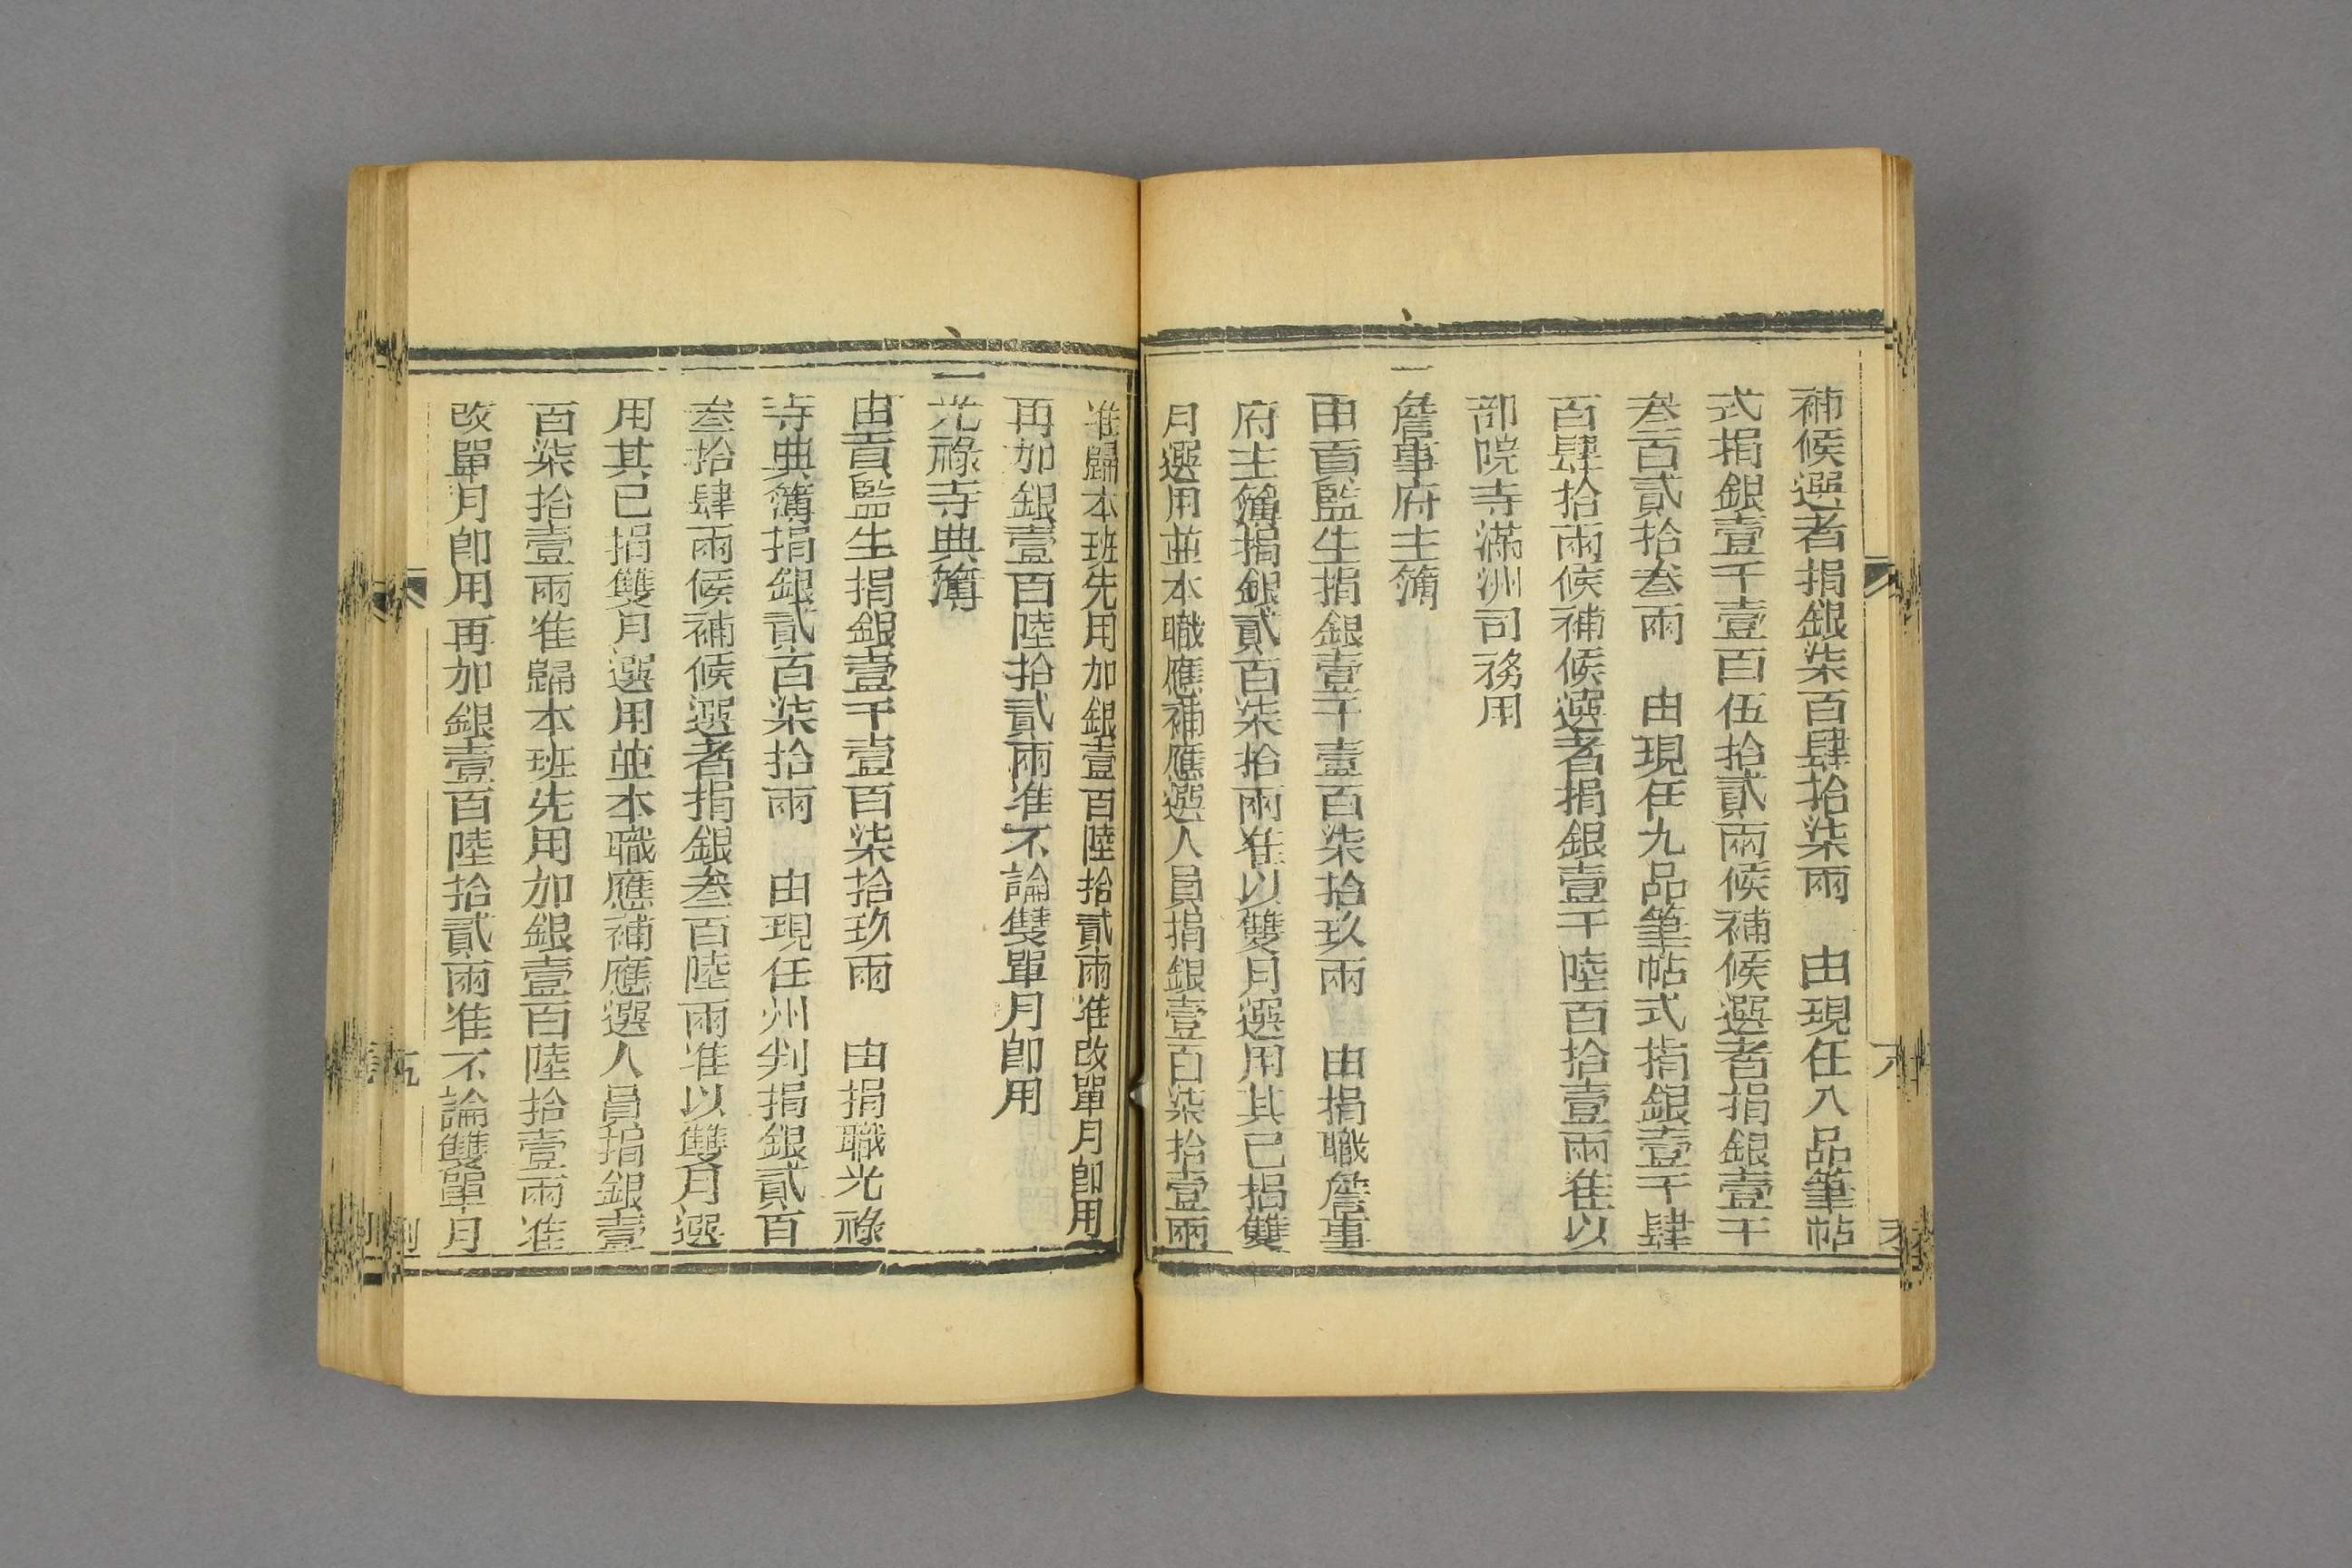 補候選者捐銀柒百肆拾柒兩　由現任八品筆帖
式捐銀壹千壹百伍拾貳兩候補候選者捐銀壹千
叁百貳拾叁兩　由現任九品筆帖式捐銀壹千肆
百肆拾兩候補候選者捐銀壹千陸百拾壹兩准以
部院寺滿洲司務用
一詹事府主簿
由貢監生捐銀壹千壹百柒拾玖兩　由捐職詹事
府主簿捐銀貳百柒拾兩准以雙月選用其已捐雙
月選用並本職應補應選人員捐銀壹百柒拾壹兩
准歸本班先用加銀壹百陸拾貳兩准改單月卽用
再加銀壹百陸拾貳兩准不論雙單月卽用
一光祿寺典簿
由貢監生捐銀壹千壹百柒拾玖兩　由捐職光祿
寺典簿捐銀貳百柒拾兩　由現任州判捐銀貳百
叁拾肆兩候補候選者捐銀叁百陸兩准以雙月選
用其已捐雙月選用並本職應補應選人員捐銀壹
百柒拾壹兩准歸本班先用加銀壹百陸拾壹兩准
改單月卽用再加銀壹百陸拾貳兩准不論雙單月